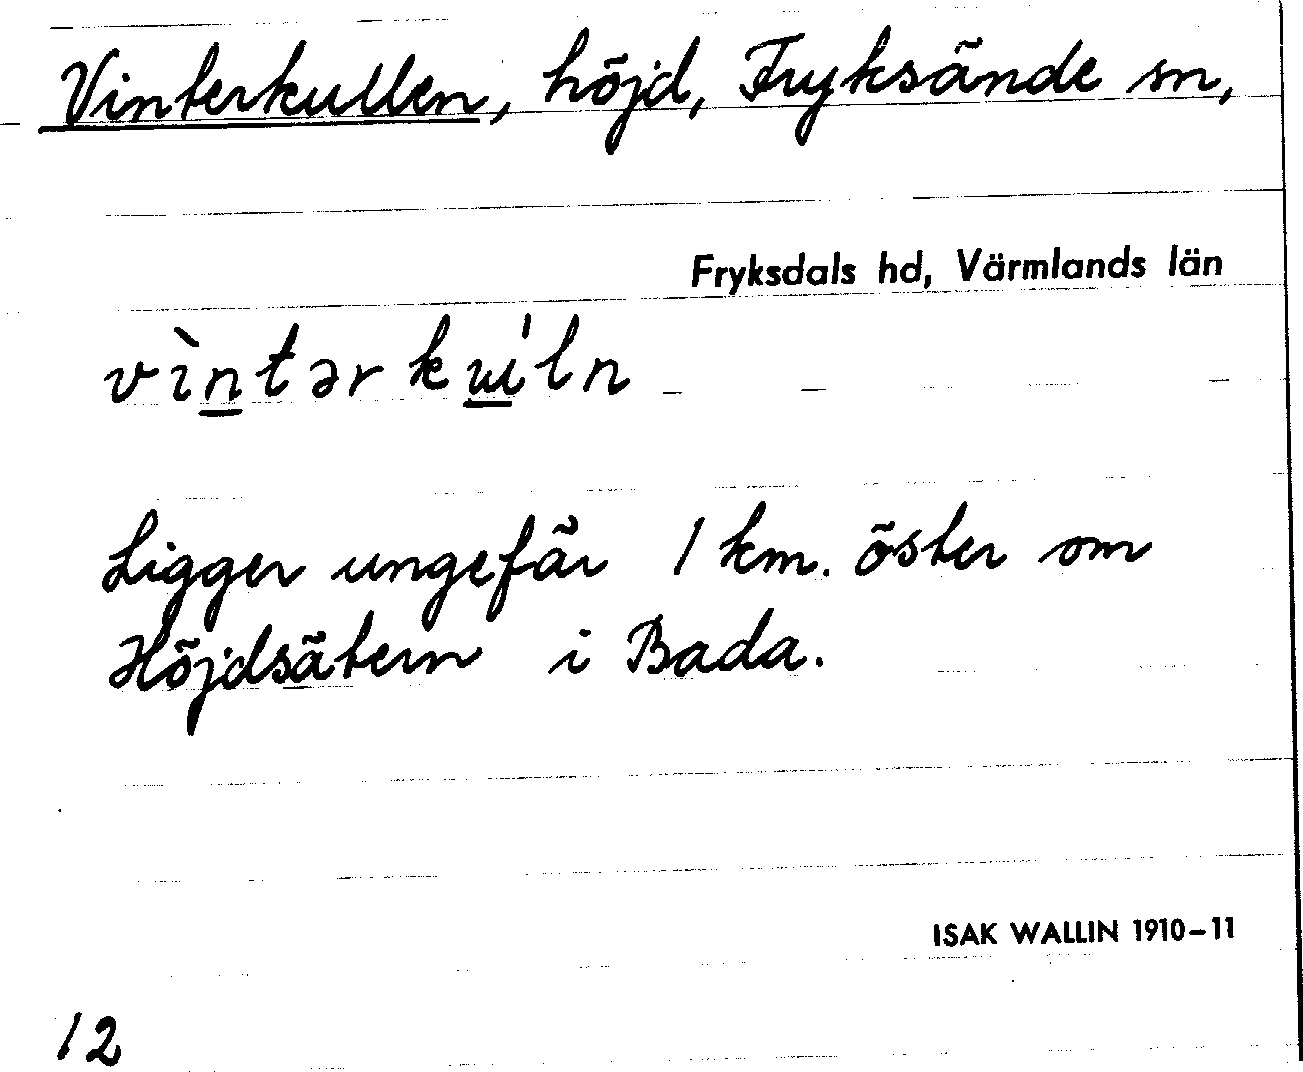 Vinterkullen, höjd, Fryksände sn,
Fryksdals hd, Värmlands län
vìntərkɯ́ln
Ligger ungefär 1 km. öster om
Höjdsätern i Bada.
ISAK WALLIN 1910–11
12